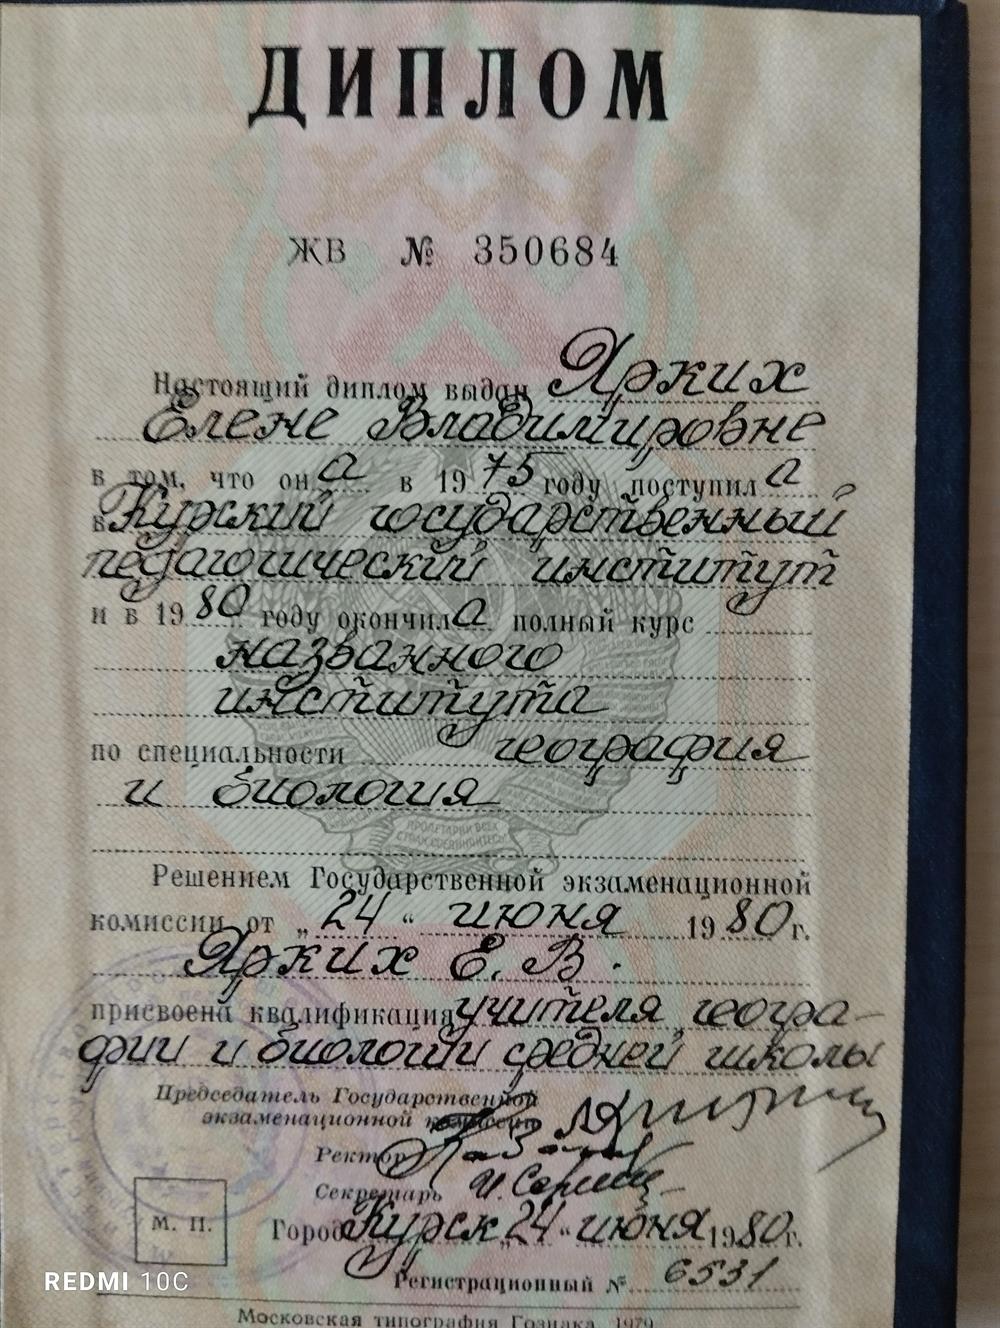 ДИПЛОМ
ЖВ № 350684
Настоящий диплом выдан Ярких
Елене Владимировне
в том, что она в 1975 году поступила
в Курский государственный
педагогический институт
и в 1980 году окончила полный курс
названного
института
по специальности география
и биология
ПРОЛЕТАРИИ ВСЕХ
СТРАН, СОЕДИНЯЙТЕСЬ!
Решением Государственной экзаменационной
комиссии от „24“ июня 1980 г.
Ярких Е. В.
присвоена квалификация учителя геогра-
фии и биологии средней школы
Председатель Государственной
экзаменационной комиссии
Ректор
Секретарь
М. П.
Город Курск „24“ июня 1980 г.
Регистрационный № 6531
REDMI 10C
Московская типография Гознака. 1979.